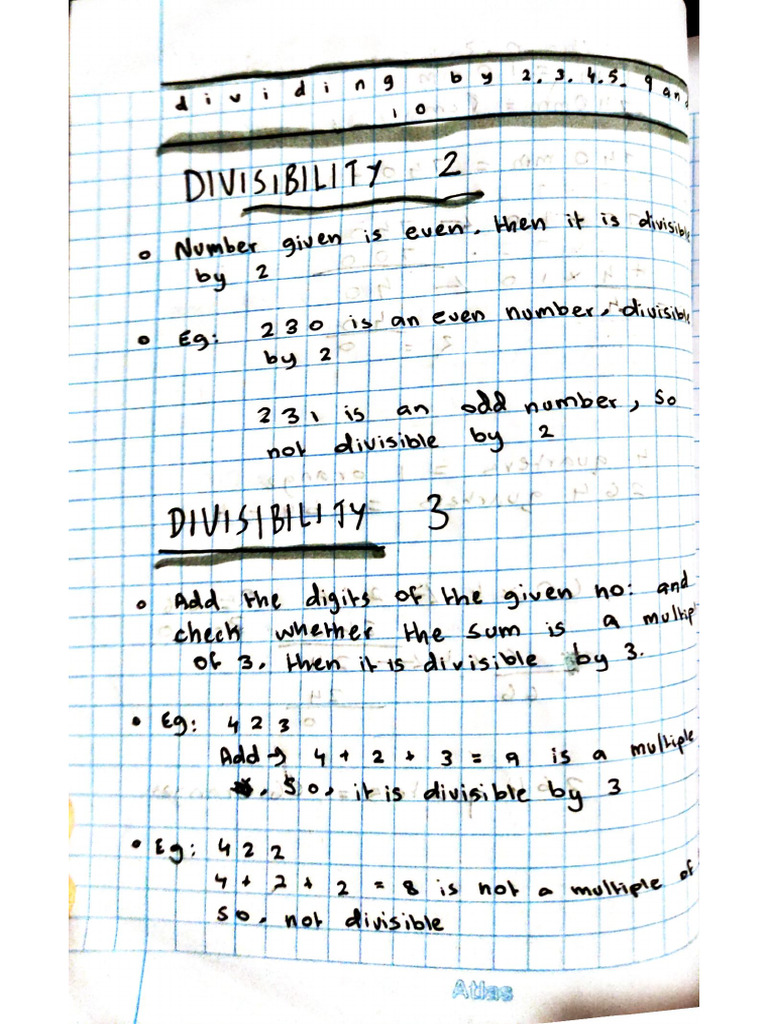 dividing by 2.3.4.5. 9 and
10
DIVISIBILITY 2
• Number given is even. then it is divisible
by 2
• Eg: 230 is an even number, divisible
by 2
231 is an odd number, so
not divisible by 2
DIVISIBILITY 3
• Add the digits of the given no: and
check whether the sum is a multipl
of 3. then it is divisible by 3.
• Eg: 423
Add → 4 + 2 + 3 = 9 is a multiple
. So, it is divisible by 3
• Eg: 422
4 + 2 + 2 = 8 is not a multiple of
so, not divisible
Atlas